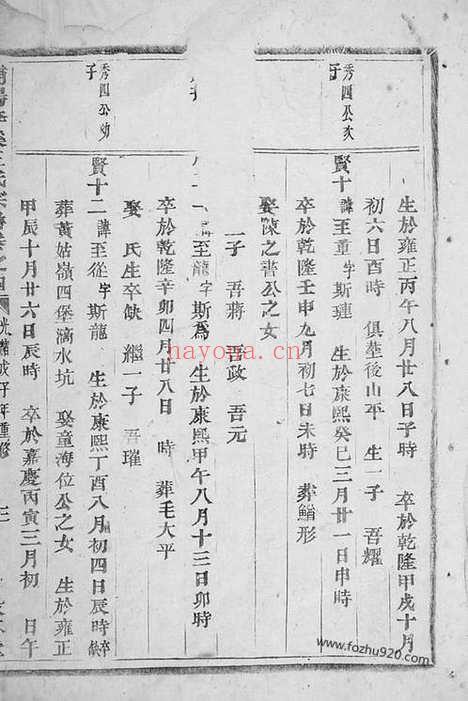 生於雍正丙午八月廿八日子時 卒於乾隆甲戌十月
初六日酉時 俱塟後山平 生一子 吾耀
秀四公次子
賢十 諱至童 字斯璉 生於康熙癸巳三月廿一日申時
卒於乾隆壬申九月初七日未時 葬鰌形
娶陳之書公之女
一子 吾蔣 吾政 吾元
至龍 字斯為 生於康熙甲午八月十三日卯時
卒於乾隆辛卯四月廿八日 時 葬毛大平
娶 氏生卒缺 繼一子 吾璀
秀四公幼子
賢十二 諱至從 字斯龍 生於康熙丁酉八月初四日辰時 卒缺
葬黃姑嶺四堡滴水坑 娶童海位公之女 生於雍正
甲辰十月廿六日辰時 卒於嘉慶丙寅三月初 日午
光緒戊子年重修
hayota.cn
www.fozhu920.com